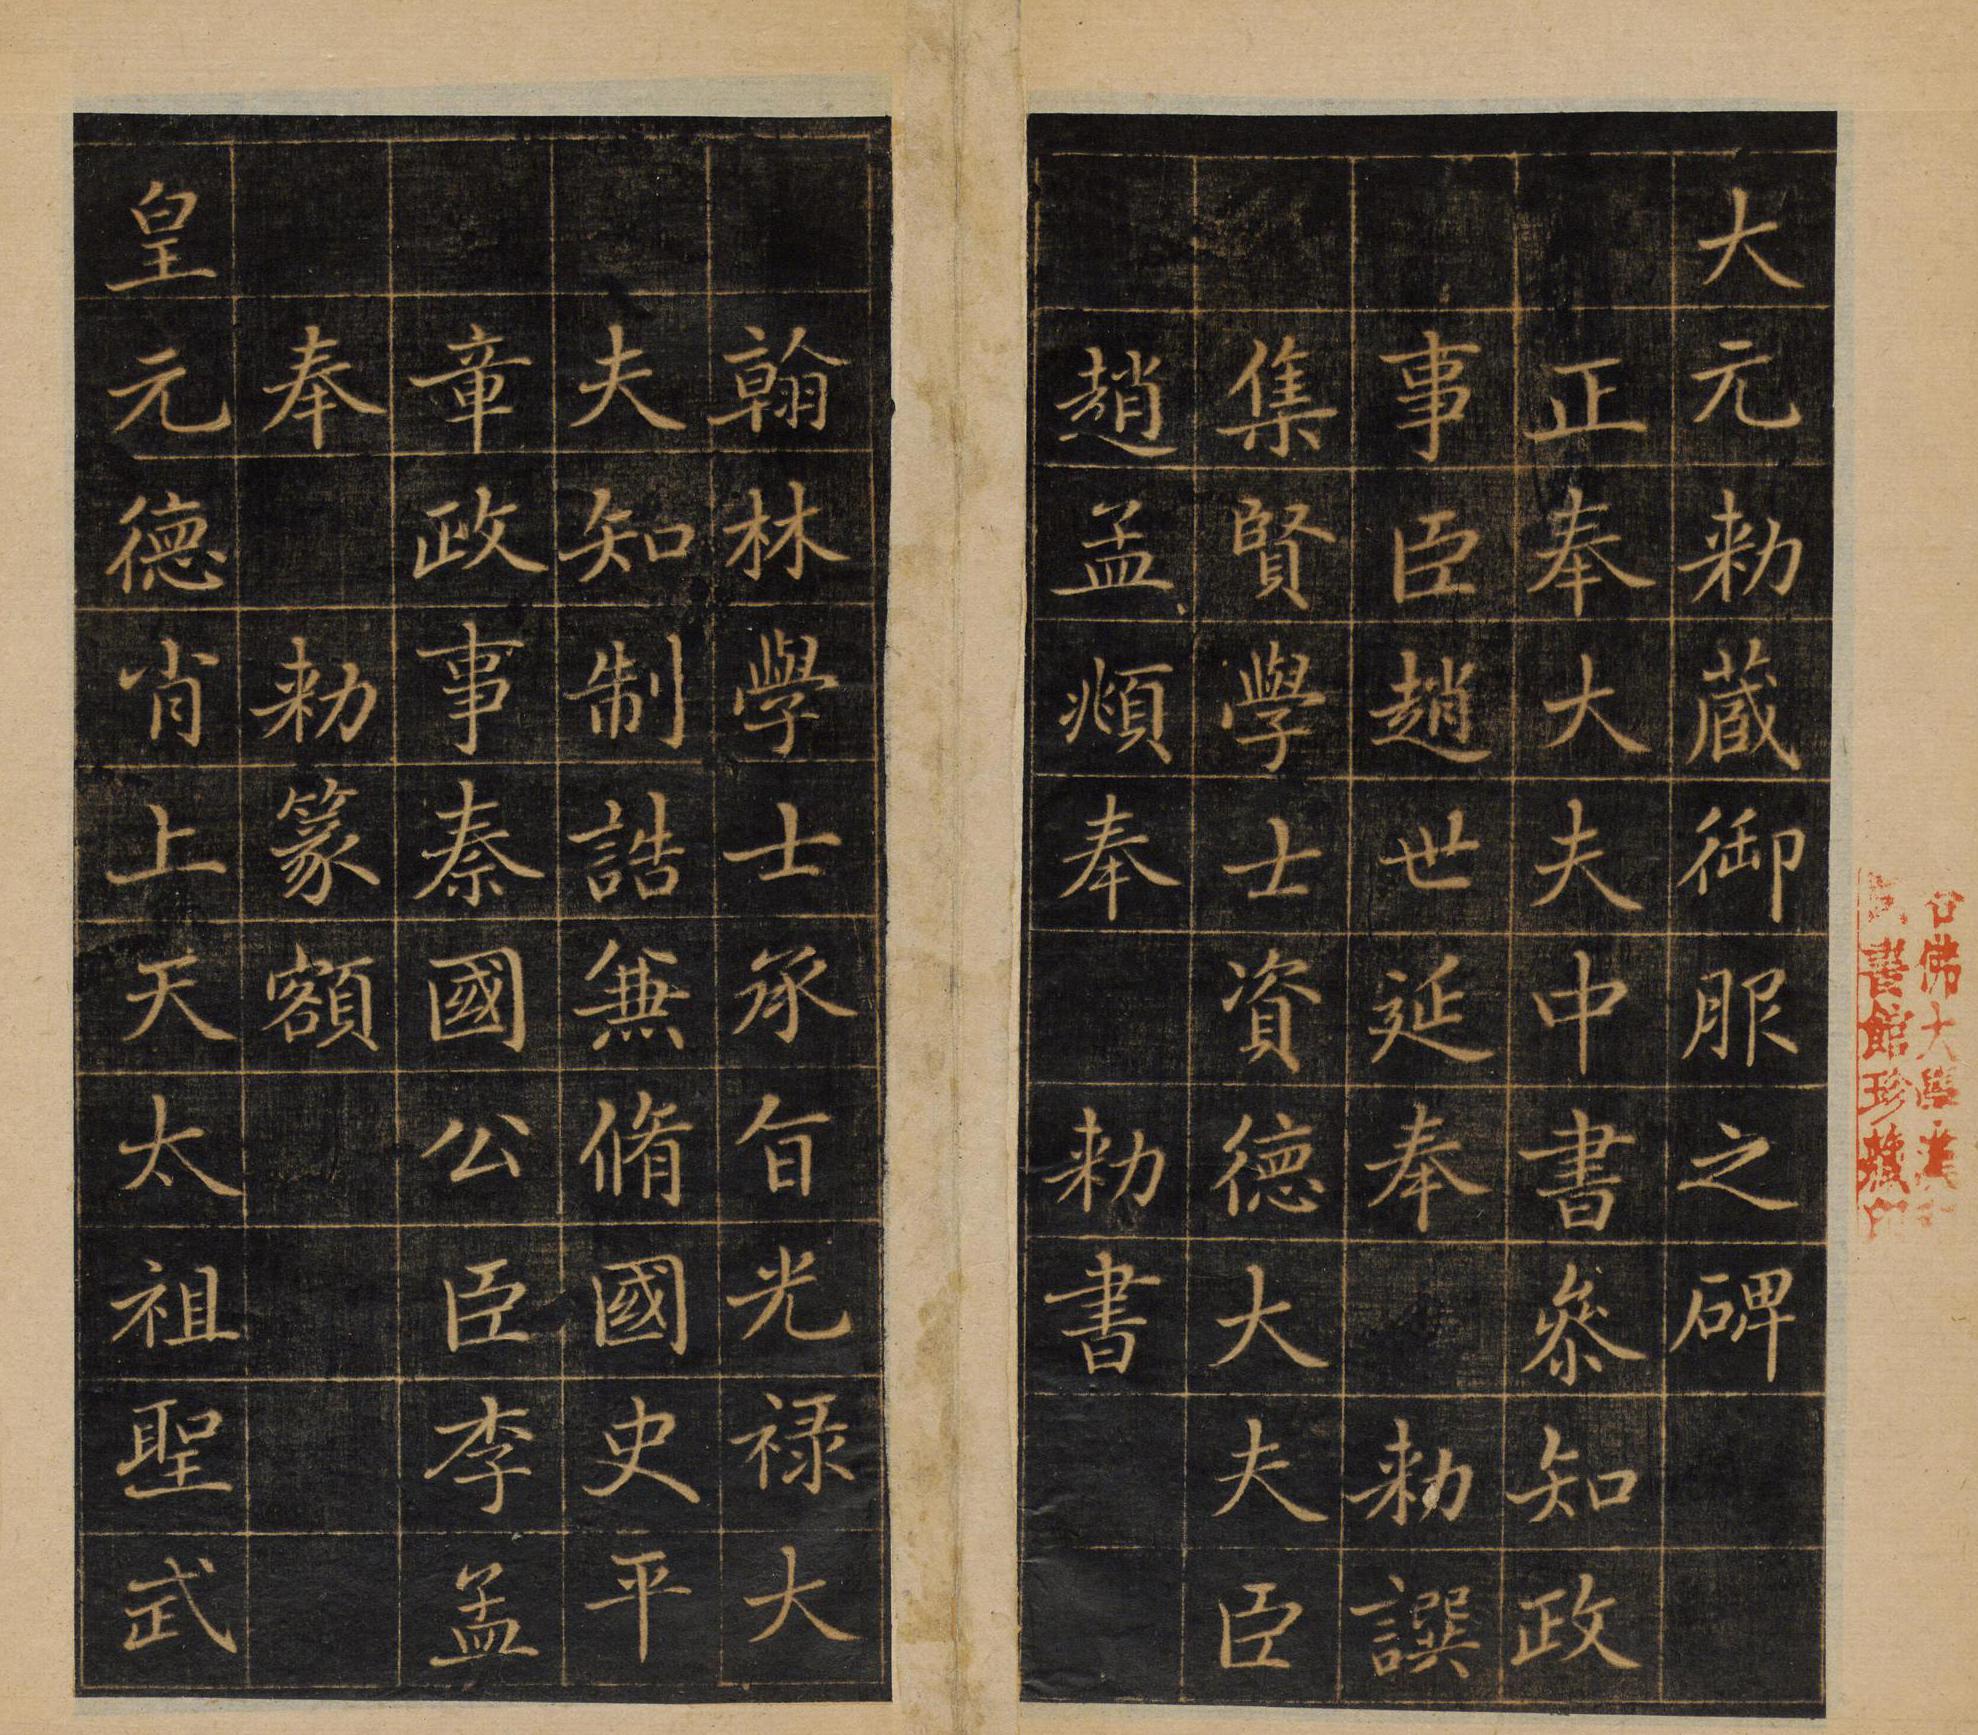 大元勑蔵御服之碑
正奉大夫中書叅知政
事臣趙世延奉 勑譔
集賢學士資德大夫臣
趙孟頫奉 勑書
翰林學士承旨光禄大
夫知制誥兼脩國史平
章政事秦國公臣李孟
奉 勑篆額
皇元德肖上天太祖聖武
哈佛大學漢和
圖書館珍藏印